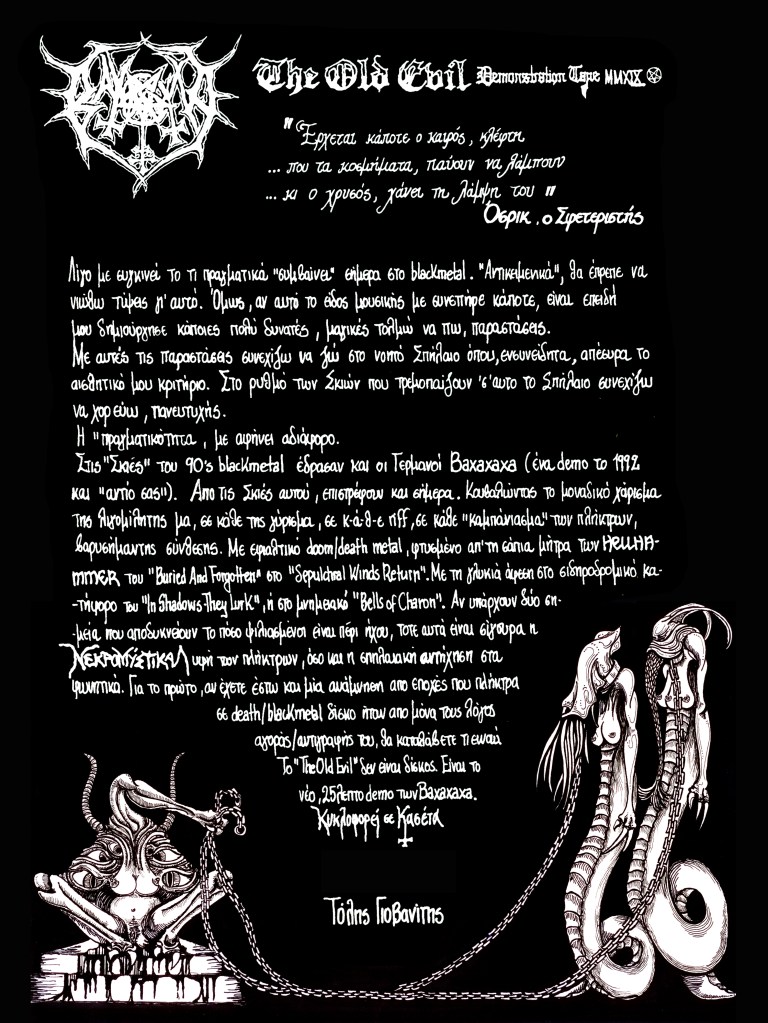 The Old Evil Demonstration Tape MMXIX
"Έρχεται κάποτε ο καιρός, κλέφτη
... που τα κοσμήματα, παύουν να λάμπουν
... κι ο χρυσός, χάνει τη λάμψη του"
Όσρικ, ο Σφετεριστής
Λίγο με συγκινεί το τι πραγματικά "συμβαίνει" σήμερα στο blackmetal. "Αντικειμενικά", θα έπρεπε να
νιώθω τύψεις γι' αυτό. Όμως, αν αυτό το είδος μουσικής με συνεπήρε κάποτε, είναι επειδή
μου δημιούργησε κάποιες πολύ δυνατές, μαγικές τολμώ να πω, παραστάσεις.
Με αυτές τις παραστάσεις συνεχίζω να ζω στο νοητό Σπήλαιο όπου, ενσυνείδητα, απέσυρα το
αισθητικό μου κριτήριο. Στο ρυθμό των Σκιών που τρεμοπαίζουν 'σ' αυτο το Σπήλαιο συνεχίζω
να χορεύω, πανευτυχής.
Η "πραγματικότητα, με αφήνει αδιάφορο.
Στις "Σκιές" του 90's blackmetal έδρασαν και οι Γερμανοί Baxaxaxa (ένα demo το 1992
και "αντίο σας"). Απο τις Σκιές αυτού, επιστρέφουν και σήμερα. Κουβαλώντας το μοναδικό χάρισμα
της λιγομίλητης μα, σε κάθε της γύρισμα, σε κ-ά-θ-ε riff, σε κάθε "καμπάνιασμα" των πλήκτρων,
βαρυσήμαντης σύνθεσης. Με εφιαλτικό doom/death metal, φτυσμένο απ' τη σάπια μήτρα των HELLHA-
MMER του "Buried And Forgotten" στο "Sepulchral Winds Return". Με τη γλυκιά άφεση στο σιδηροδρομικό κα-
-τήφορο του "In Shadows They Lurk", ή στο μνημειακό "Bells of Charon". Αν υπάρχουν δύο ση-
-μεία που αποδυκνείουν το πόσο ψιλιασμένοι είναι περί ήχου, τοτε αυτά είναι σίγουρα η
ΝΕΚΡΟΜΥΣΤΙΚΑΛ υφή των πλήκτρων, όσο και η σπηλαιική αντήχηση στα
φωνητικά. Για το πρώτο, αν έχετε έστω και μία ανάμνηση απο εποχές που πλήκτρα
σε death/blackmetal δίσκο ήταν απο μόνα τους λόγος
αγοράς/αντιγραφής του, θα καταλάβετε τι εννοώ
Το "The Old Evil" δεν είναι δίσκος. Είναι το
νέο, 25λεπτο demo των Baxaxaxa.
Κυκλοφορεί σε Κασέτα
Τόλης Γιοβανίτης